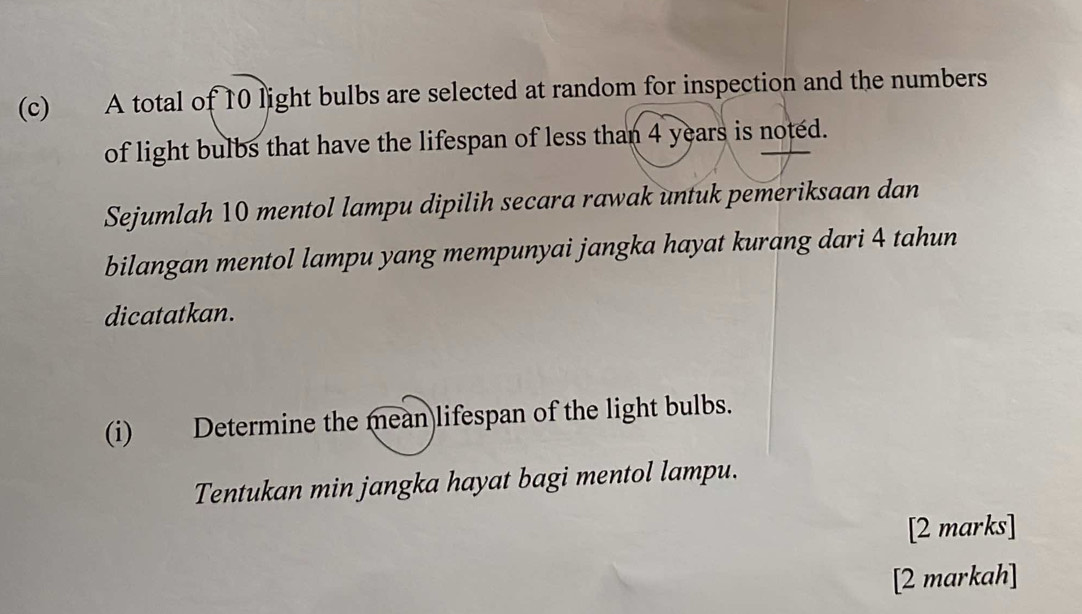 (c) A total of 10 light bulbs are selected at random for inspection and the numbers
of light bulbs that have the lifespan of less than 4 years is noted.
Sejumlah 10 mentol lampu dipilih secara rawak untuk pemeriksaan dan
bilangan mentol lampu yang mempunyai jangka hayat kurang dari 4 tahun
dicatatkan.
(i) Determine the mean lifespan of the light bulbs.
Tentukan min jangka hayat bagi mentol lampu.
[2 marks]
[2 markah]